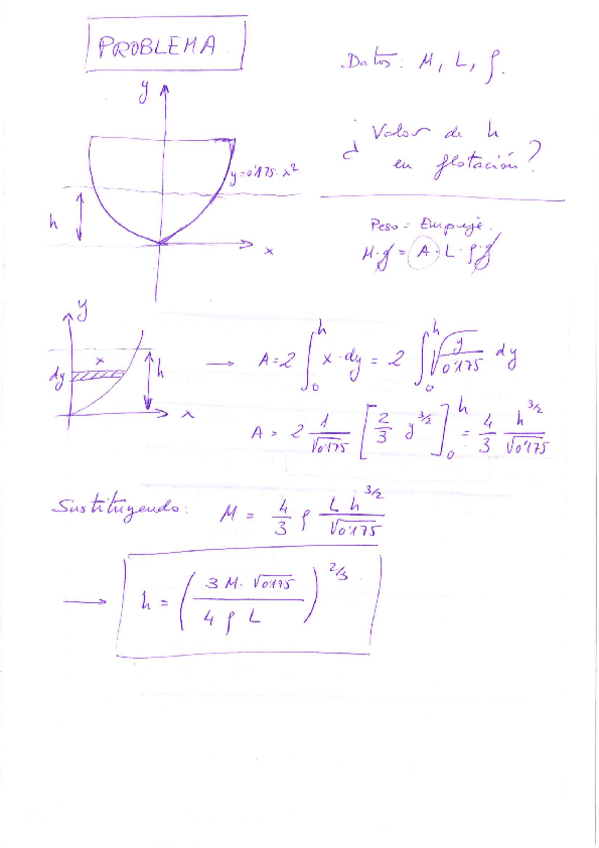 PROBLEMA
Datos: M, L, ρ.
¿Valor de h
en flotación?
y
y=0'175·x²
h
x
Peso = Empuje.
M·g = A·L·ρ·g
y
x
dy
h
x
→ A = 2 ∫₀ʰ x·dy = 2 ∫₀ʰ √(y/0'175) dy
A = 2 1/√0'175 [2/3 y^3/2]₀ʰ = 4/3 h^3/2/√0'175
Sustituyendo: M = 4/3 ρ L h^3/2/√0'175
→ h = (3 M·√0'175 / 4 ρ L)^2/3